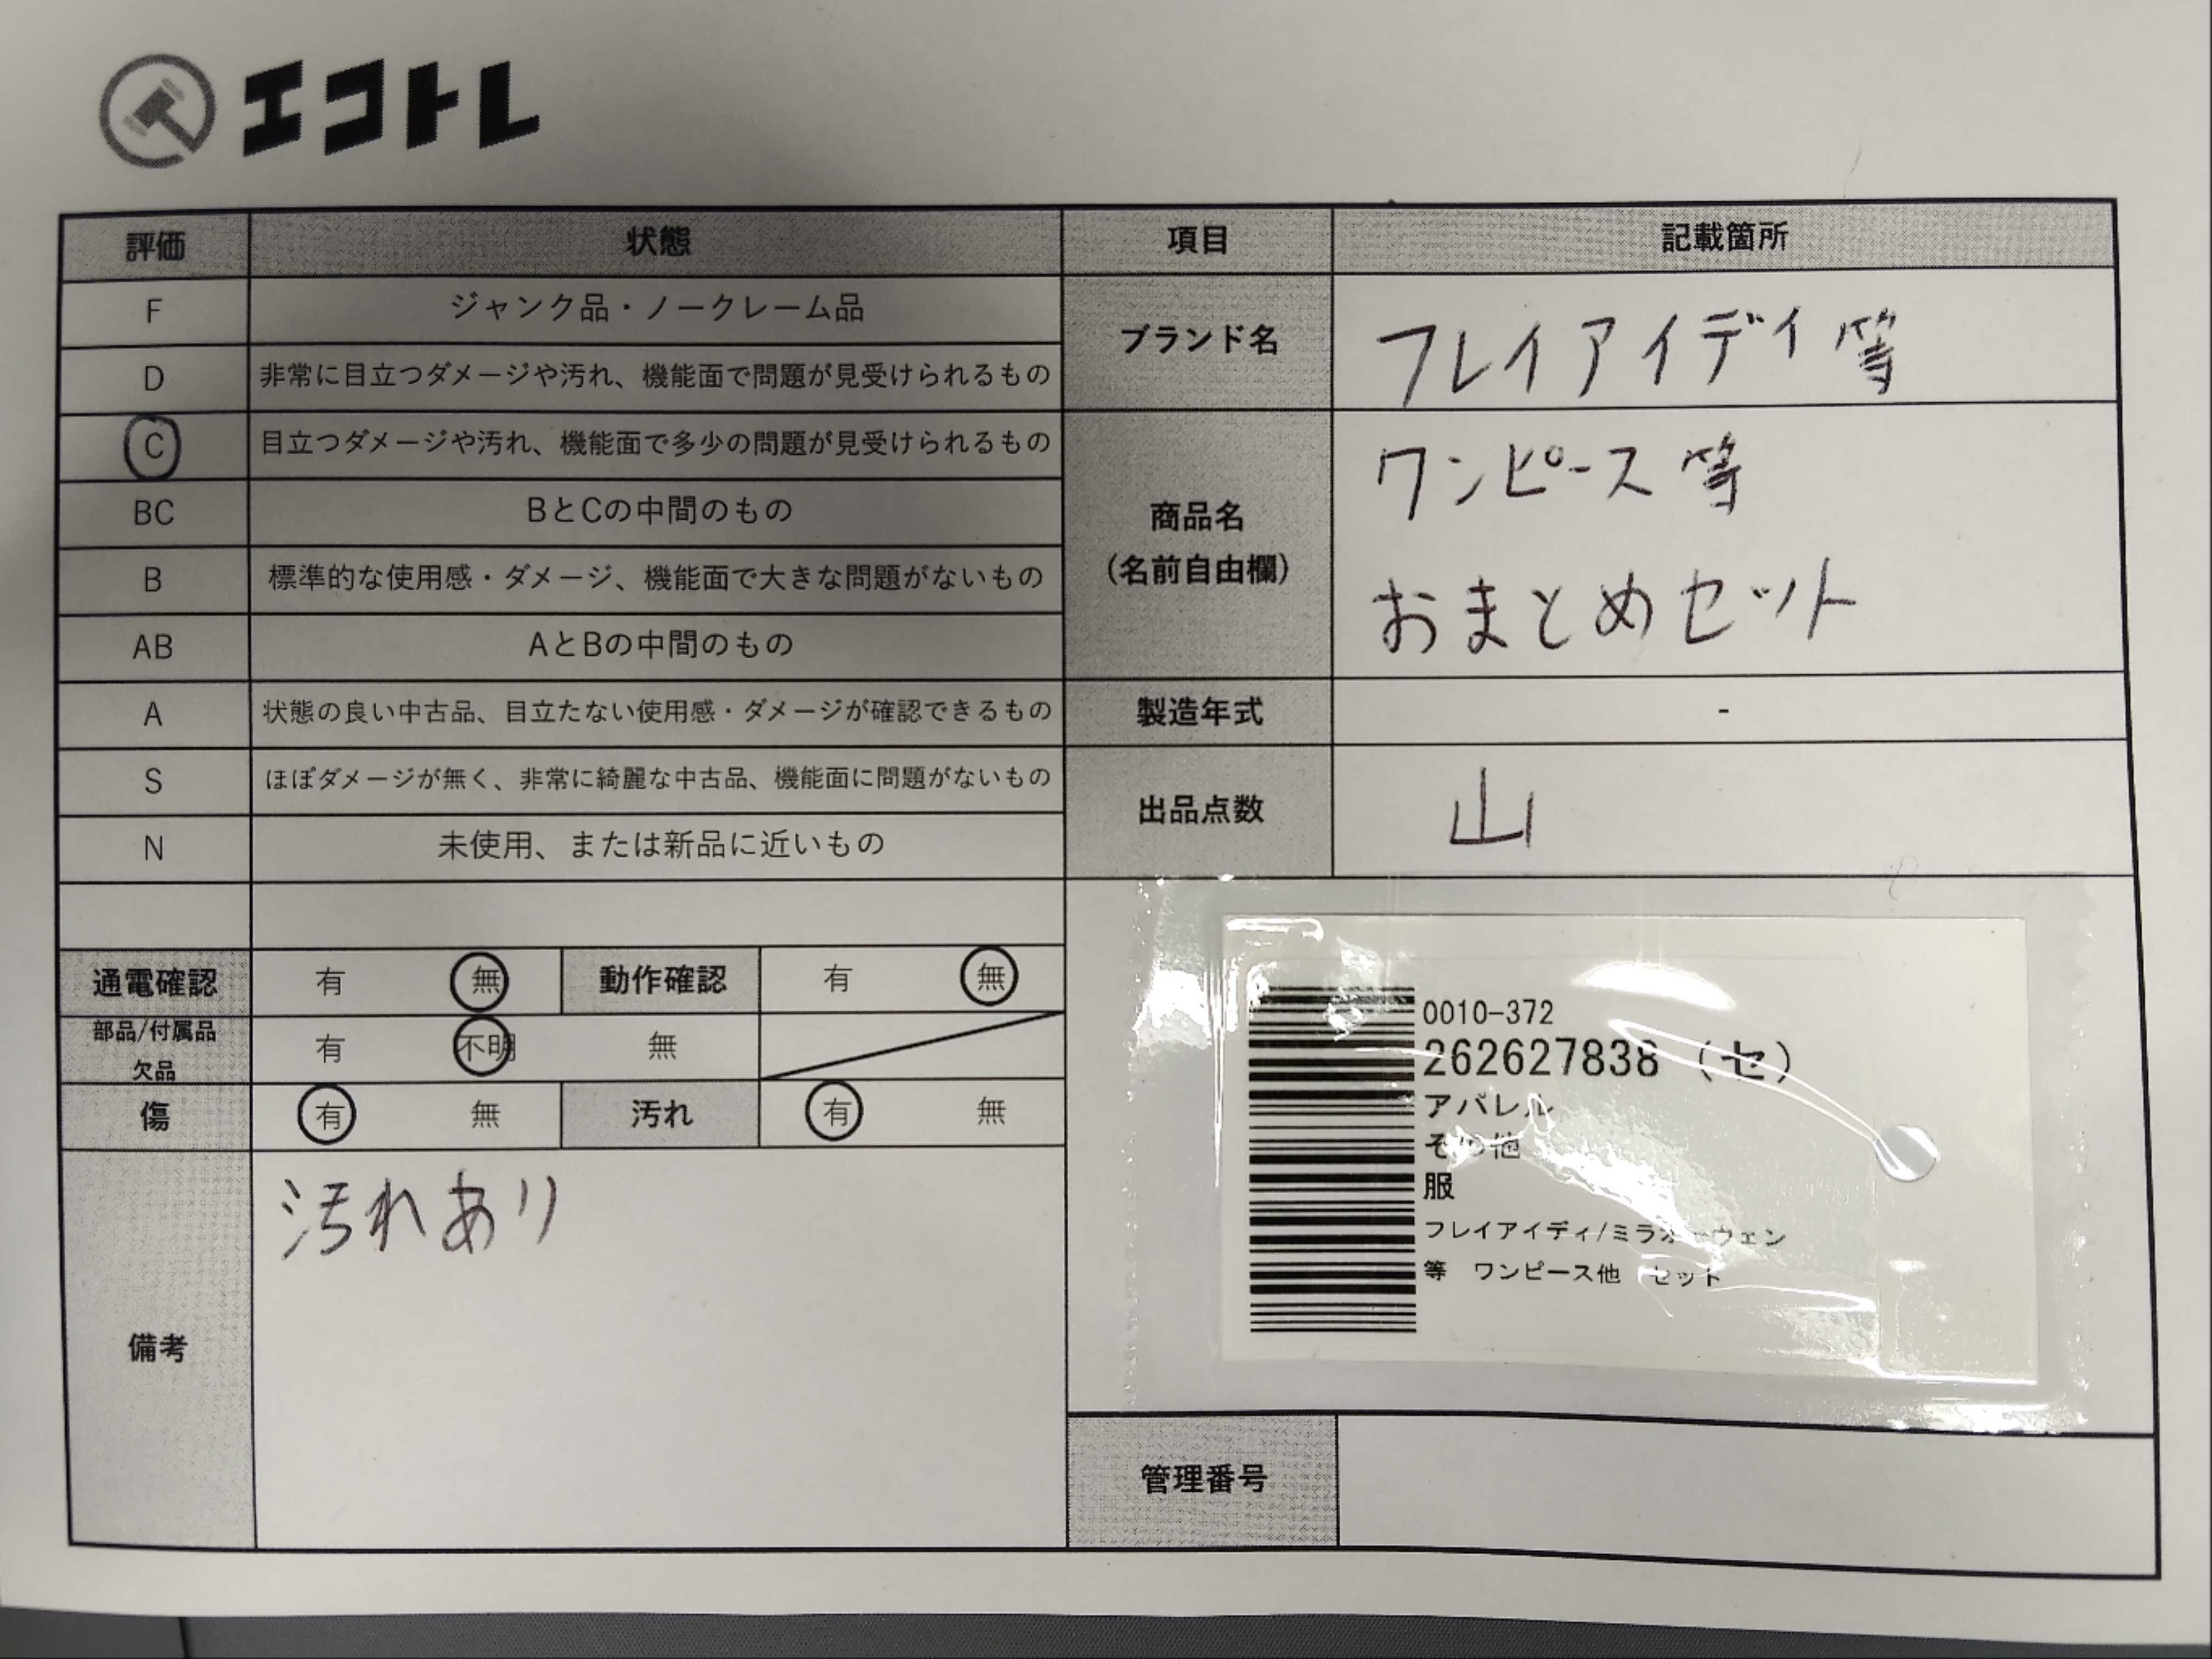 エコトレ
評価 状態 項目 記載箇所
F ジャンク品・ノークレーム品
D 非常に目立つダメージや汚れ、機能面で問題が見受けられるもの
C 目立つダメージや汚れ、機能面で多少の問題が見受けられるもの
BC BとCの中間のもの
B 標準的な使用感・ダメージ、機能面で大きな問題がないもの
AB AとBの中間のもの
A 状態の良い中古品、目立たない使用感・ダメージが確認できるもの
S ほぼダメージが無く、非常に綺麗な中古品、機能面に問題がないもの
N 未使用、または新品に近いもの
ブランド名 フレイアイディ等
商品名
(名前自由欄)
ワンピース等
おまとめセット
製造年式 -
出品点数 山
通電確認 有 無 動作確認 有 無
部品/付属品
欠品
有 不明 無
傷 有 無 汚れ 有 無
備考 汚れあり
0010-372
262627838 (セ)
アパレル
その他
服
フレイアイディ/ミラオーウェン
等 ワンピース他 セット
管理番号